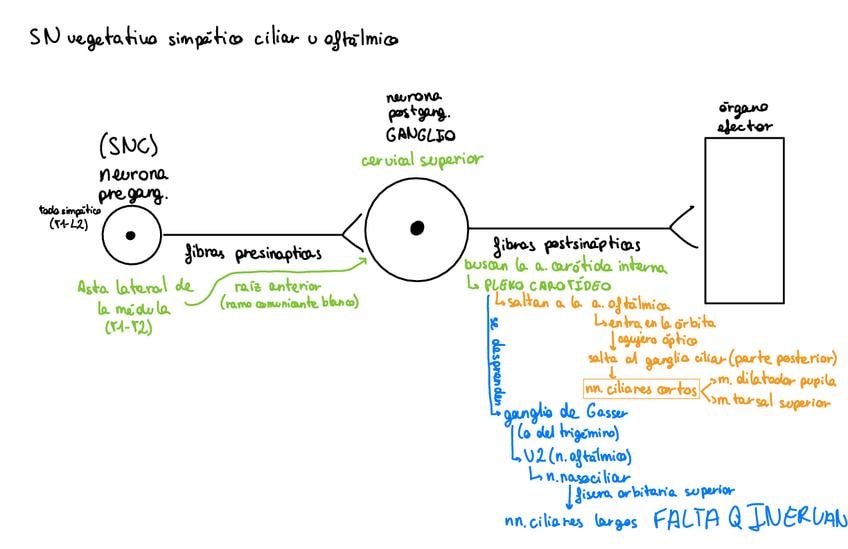 SN vegetativo simpático ciliar u oftálmico
(SNC)
neurona
pregang.
todo simpático
(T1-L2)
fibras presinapticas
Asta lateral de
la médula
(T1-T2)
raíz anterior
(ramo comunicante blanco)
neurona
postgang.
GANGLIO
cervical superior
fibras postsinápticas
buscan la a. carótida interna
PLEXO CAROTÍDEO
saltan a la a. oftálmica
entra en la órbita
agujero óptico
salta al ganglio ciliar (parte posterior)
nn. ciliares cortos
m. dilatador pupila
m tarsal superior
se desprenden
ganglio de Gasser
(o del trigémino)
V2 (n. oftálmico)
n. nasociliar
fisura orbitaria superior
nn. ciliares largos FALTA Q INERVAN
órgano
efector